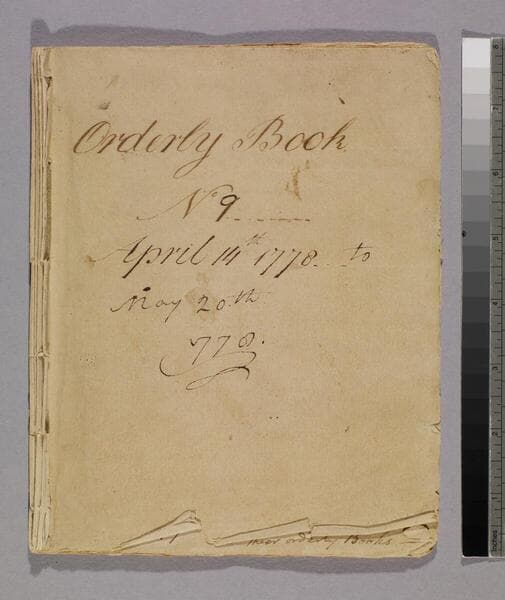 Orderly Book
No 9
April 14th 1778 to
May 20th
778.
orderly Books
Inches
1
2
3
4
5
6
7
8